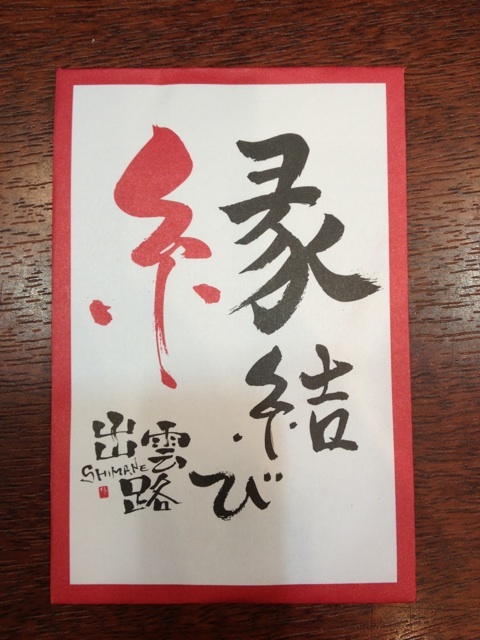 縁
結び
出雲路
SHIMANE